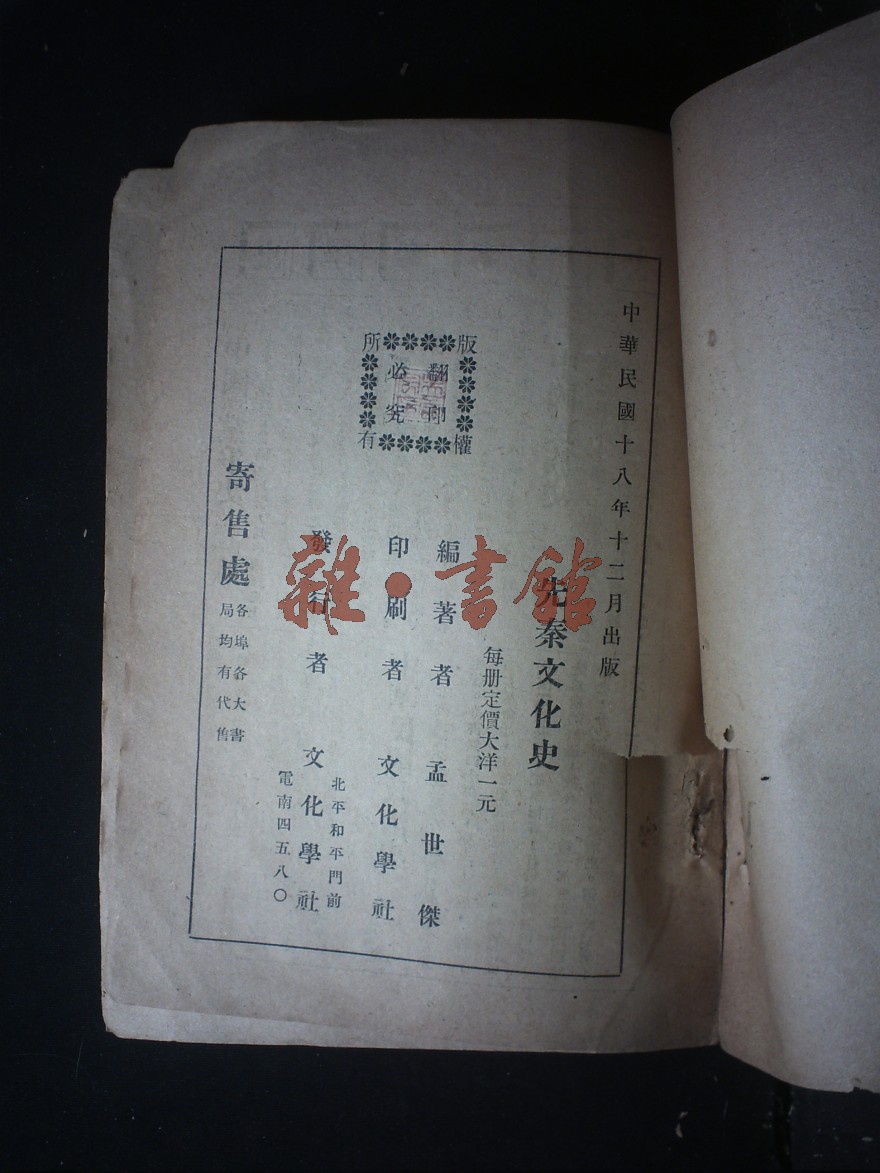 中華民國十八年十二月出版
先秦文化史
每册定價大洋一元
編著者 孟世傑
印刷者 文化學社
北平和平門前
發行者 文化學社
電南四五八〇
寄售處
各埠各大書
局均有代售
版權
所有
翻印
必究
雜·書館